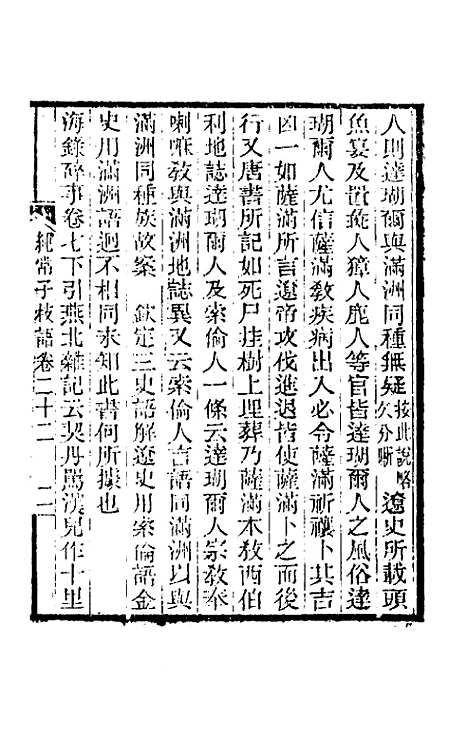 人則達瑚爾與滿洲同種無疑按此說略欠分晰遼史所載頭
魚宴及鷹人獐人鹿人等官皆達瑚爾人之風俗達
瑚爾人尤信薩滿教疾病出入必令薩滿祈禳卜其吉
凶一如薩滿所言遼帝攻伐進退皆使薩滿卜之而後
行又唐書所記如死尸挂樹上埋葬乃薩滿本教西伯
利地誌達瑚爾人及索倫人一條云達瑚爾人宗教奉
喇嘛教與滿洲地誌異又云索倫人言語同滿洲以與
滿洲同種族故案 欽定三史語解遼史用索倫語金
史用滿洲語迥不相同未知此書何所據也
海錄碎事卷七下引燕北雜記云契丹罵漢兒作十里
純常子枝語卷二十二 二